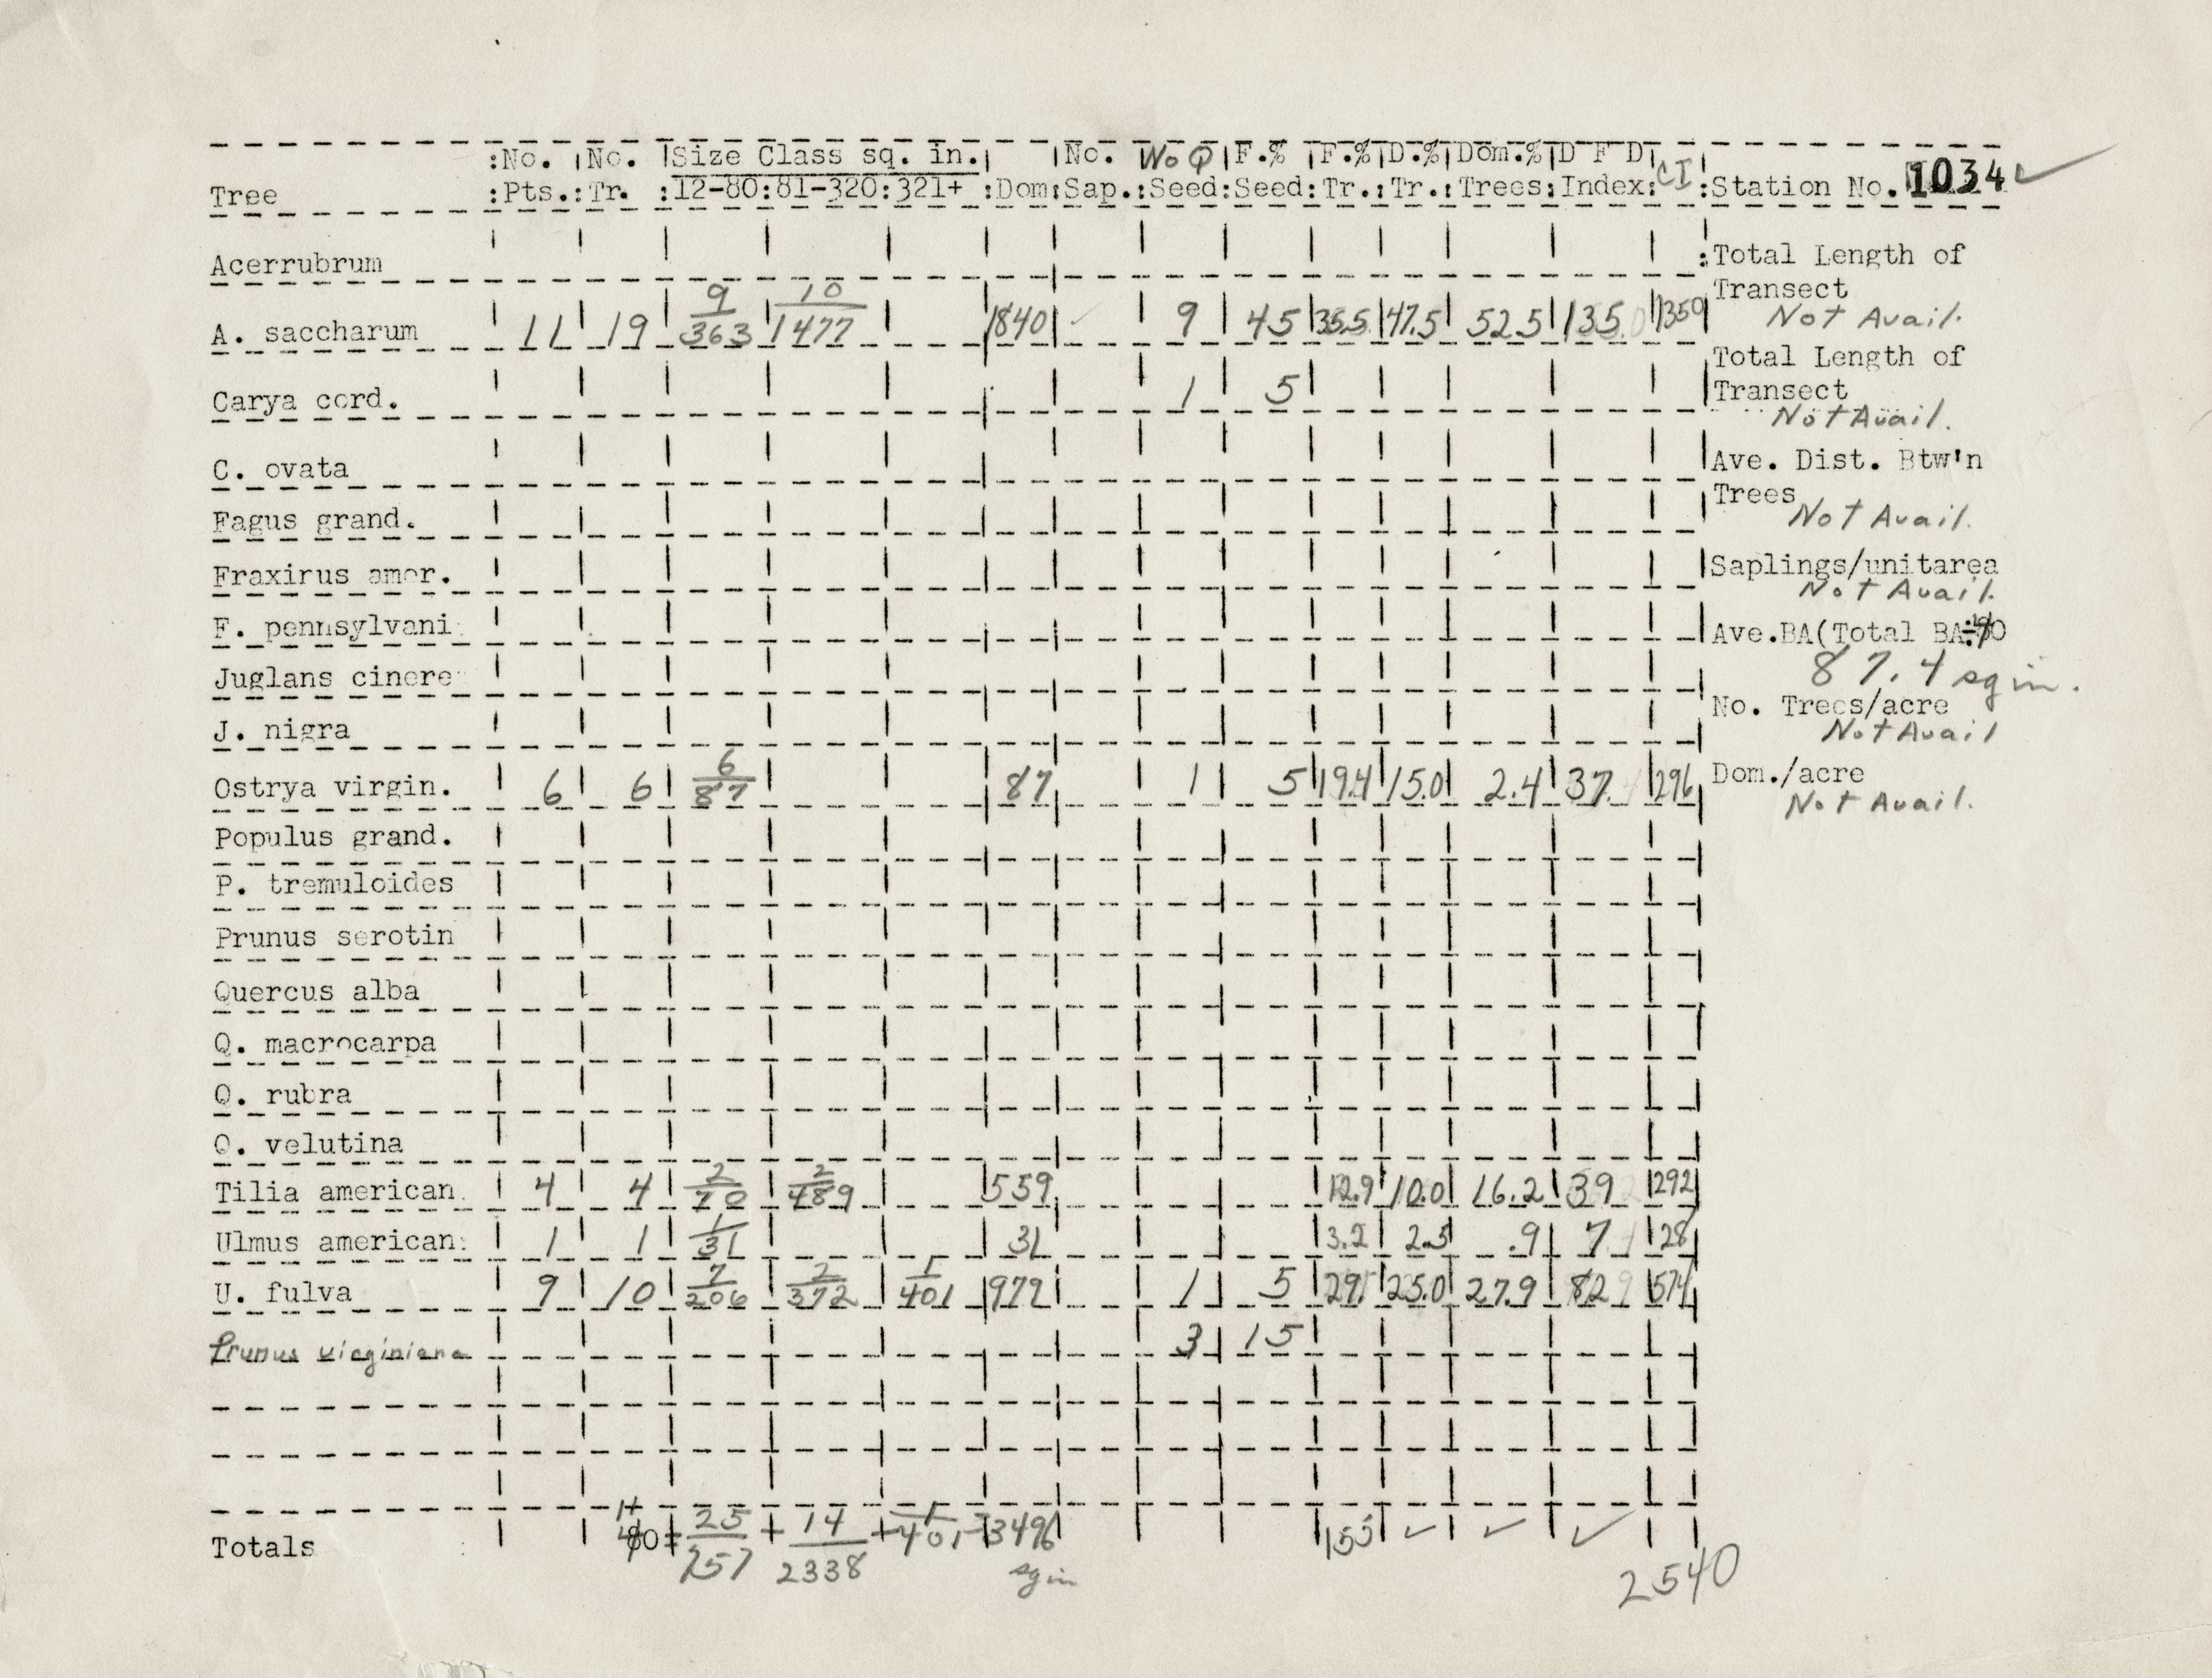 :No. No. Size Class sq. in. No. No Q F.% F.% D.% Dom.% D F D CI
Tree :Pts.:Tr. :12-80:81-320:321+ :Dom:Sap.:Seed:Seed:Tr.:Tr.:Trees:Index: :Station No. 1034 ✓
Acerrubrum :Total Length of
Transect
Not Avail.
9 10
A. saccharum 11 19 363 1477 1840 ✓ 9 45 35.5 47.5 52.5 135.0 1350
Total Length of
Carya cord. 1 5 Transect
Not Avail.
C. ovata Ave. Dist. Btw'n
Trees
Fagus grand. Not Avail.
Fraxirus amer. Saplings/unitarea
Not Avail.
F. pennsylvani Ave.BA(Total BA÷40
87.4 sq in.
Juglans cinere
No. Trees/acre
J. nigra Not Avail
6
Ostrya virgin. 6 6 87 87 1 5 19.4 15.0 2.4 37. 296 Dom./acre
Not Avail.
Populus grand.
P. tremuloides
Prunus serotin
Quercus alba
Q. macrocarpa
Q. rubra
Q. velutina
2 2
Tilia american. 4 4 70 489 559 12.9 10.0 16.2 39 292
1
Ulmus american: 1 1 31 31 3.2 2.5 .9 7 28
7 2 1
U. fulva 9 10 206 372 401 979 1 5 29. 25.0 27.9 82 574
Prunus virginiana 3 15
25 14 1
Totals : 40= 757 + 2338 + 401 =3496 155 ✓ ✓ ✓
sq in
2540